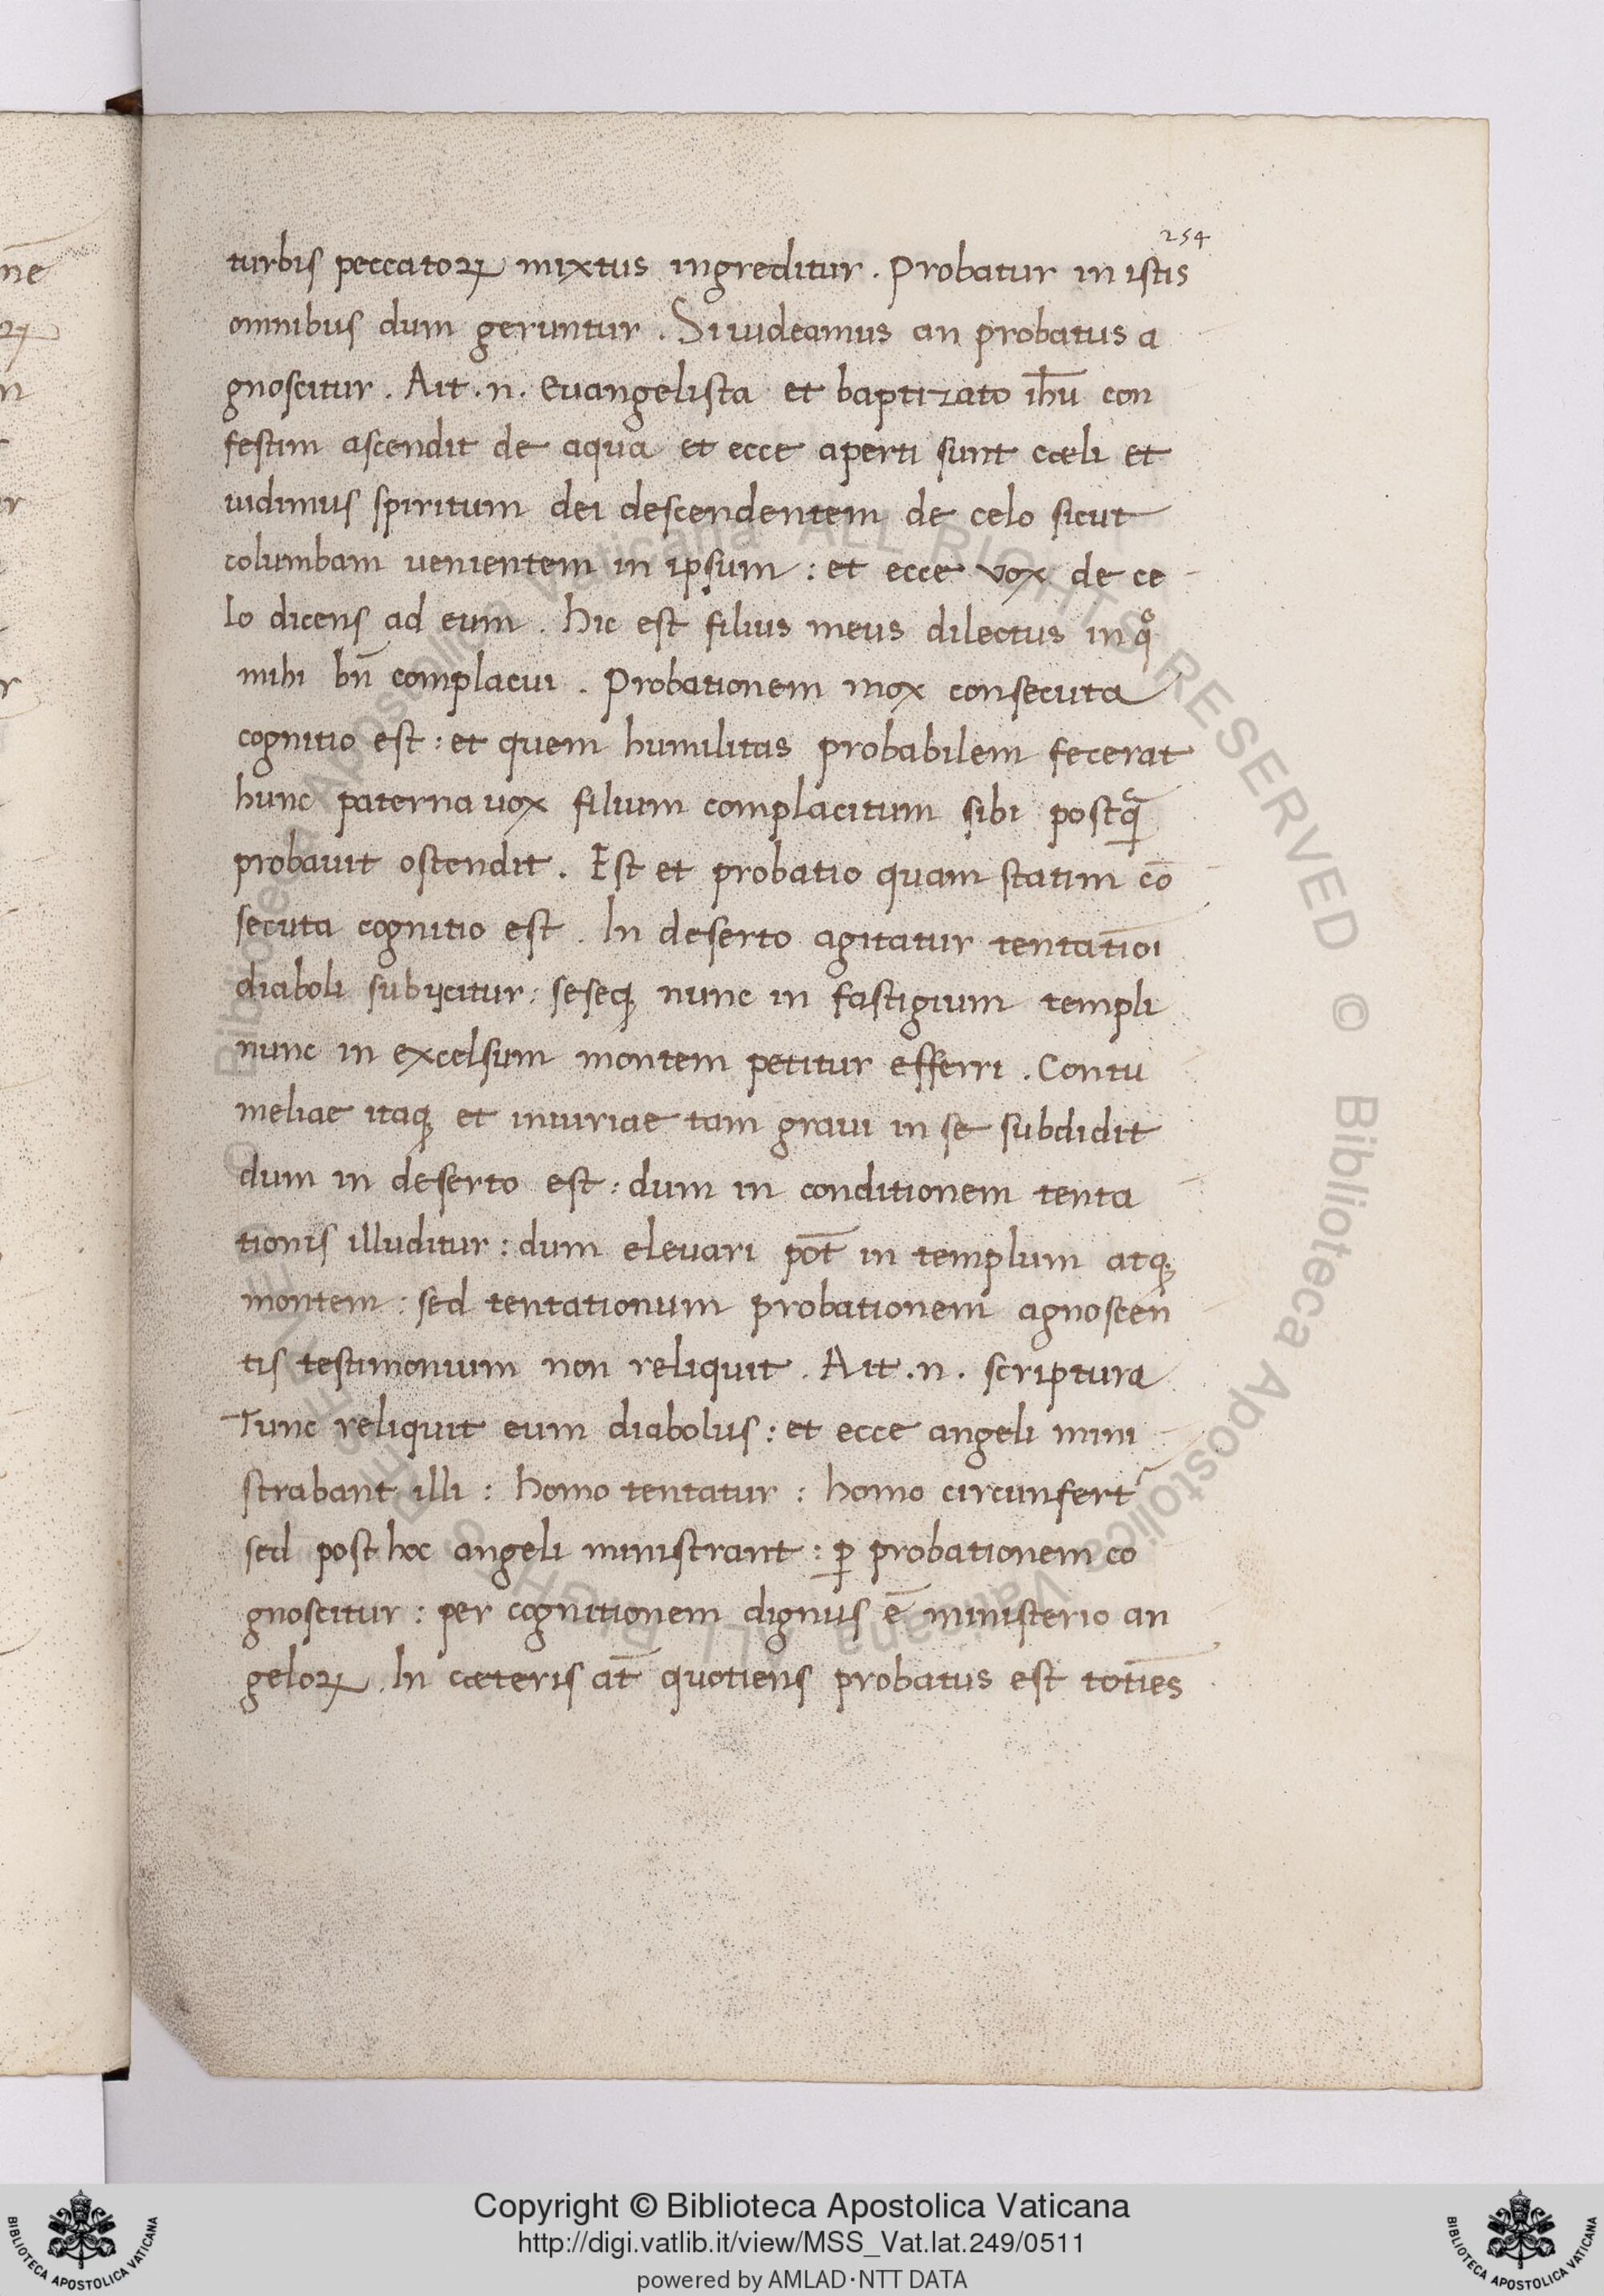 254
turbis peccatoꝝ mixtus ingreditur . Probatur in istis
omnibus dum geruntur . Si uideamus an probatus a
gnoscitur . Ait .n. Euangelista et baptizato ihū con
festim ascendit de aqua et ecce aperti sunt cæli et
uidimus spiritum dei descendentem de celo sicut
columbam uenientem in ipsum : et ecce vox de ce
lo dicens ad eum . Hic est filius meus dilectus in qͦ
mihi bn̄ complacui . Probationem mox consecuta
cognitio est : et quem humilitas probabilem fecerat
hunc paterna uox filium complacitum sibi postqᷓ
probauit ostendit . Est et probatio quam statim cō
secuta cognitio est . In deserto agitatur tentatiōi
diaboli subijcitur : seseqꝫ nunc in fastigium templi
nunc in excelsum montem petitur efferri . Contu
meliae itaqꝫ et iniuriae tam graui in se subdidit
dum in deserto est : dum in conditionem tenta
tionis illuditur : dum eleuari pōt in templum atqꝫ
montem : sed tentationum probationem agnoscen
tis testimonium non reliquit . Ait .n. scriptura
Tunc reliquit eum diabolus : et ecce angeli mini
strabant illi : homo tentatur : homo circunfert᷑
sed post hoc angeli ministrant : ꝑ probationem co
gnoscitur : per cognitionem dignus ē ministerio an
geloꝝ . In cæteris at̄ quotiens probatus est totiēs
ne
ꝝ
n
r
r
© Biblioteca Apostolica Vaticana ALL RIGHTS RESERVED © Biblioteca Apostolica Vaticana ALL RIGHTS RESERVED
Copyright © Biblioteca Apostolica Vaticana
http://digi.vatlib.it/view/MSS_Vat.lat.249/0511
powered by AMLAD·NTT DATA
BIBLIOTECA APOSTOLICA VATICANA
BIBLIOTECA APOSTOLICA VATICANA